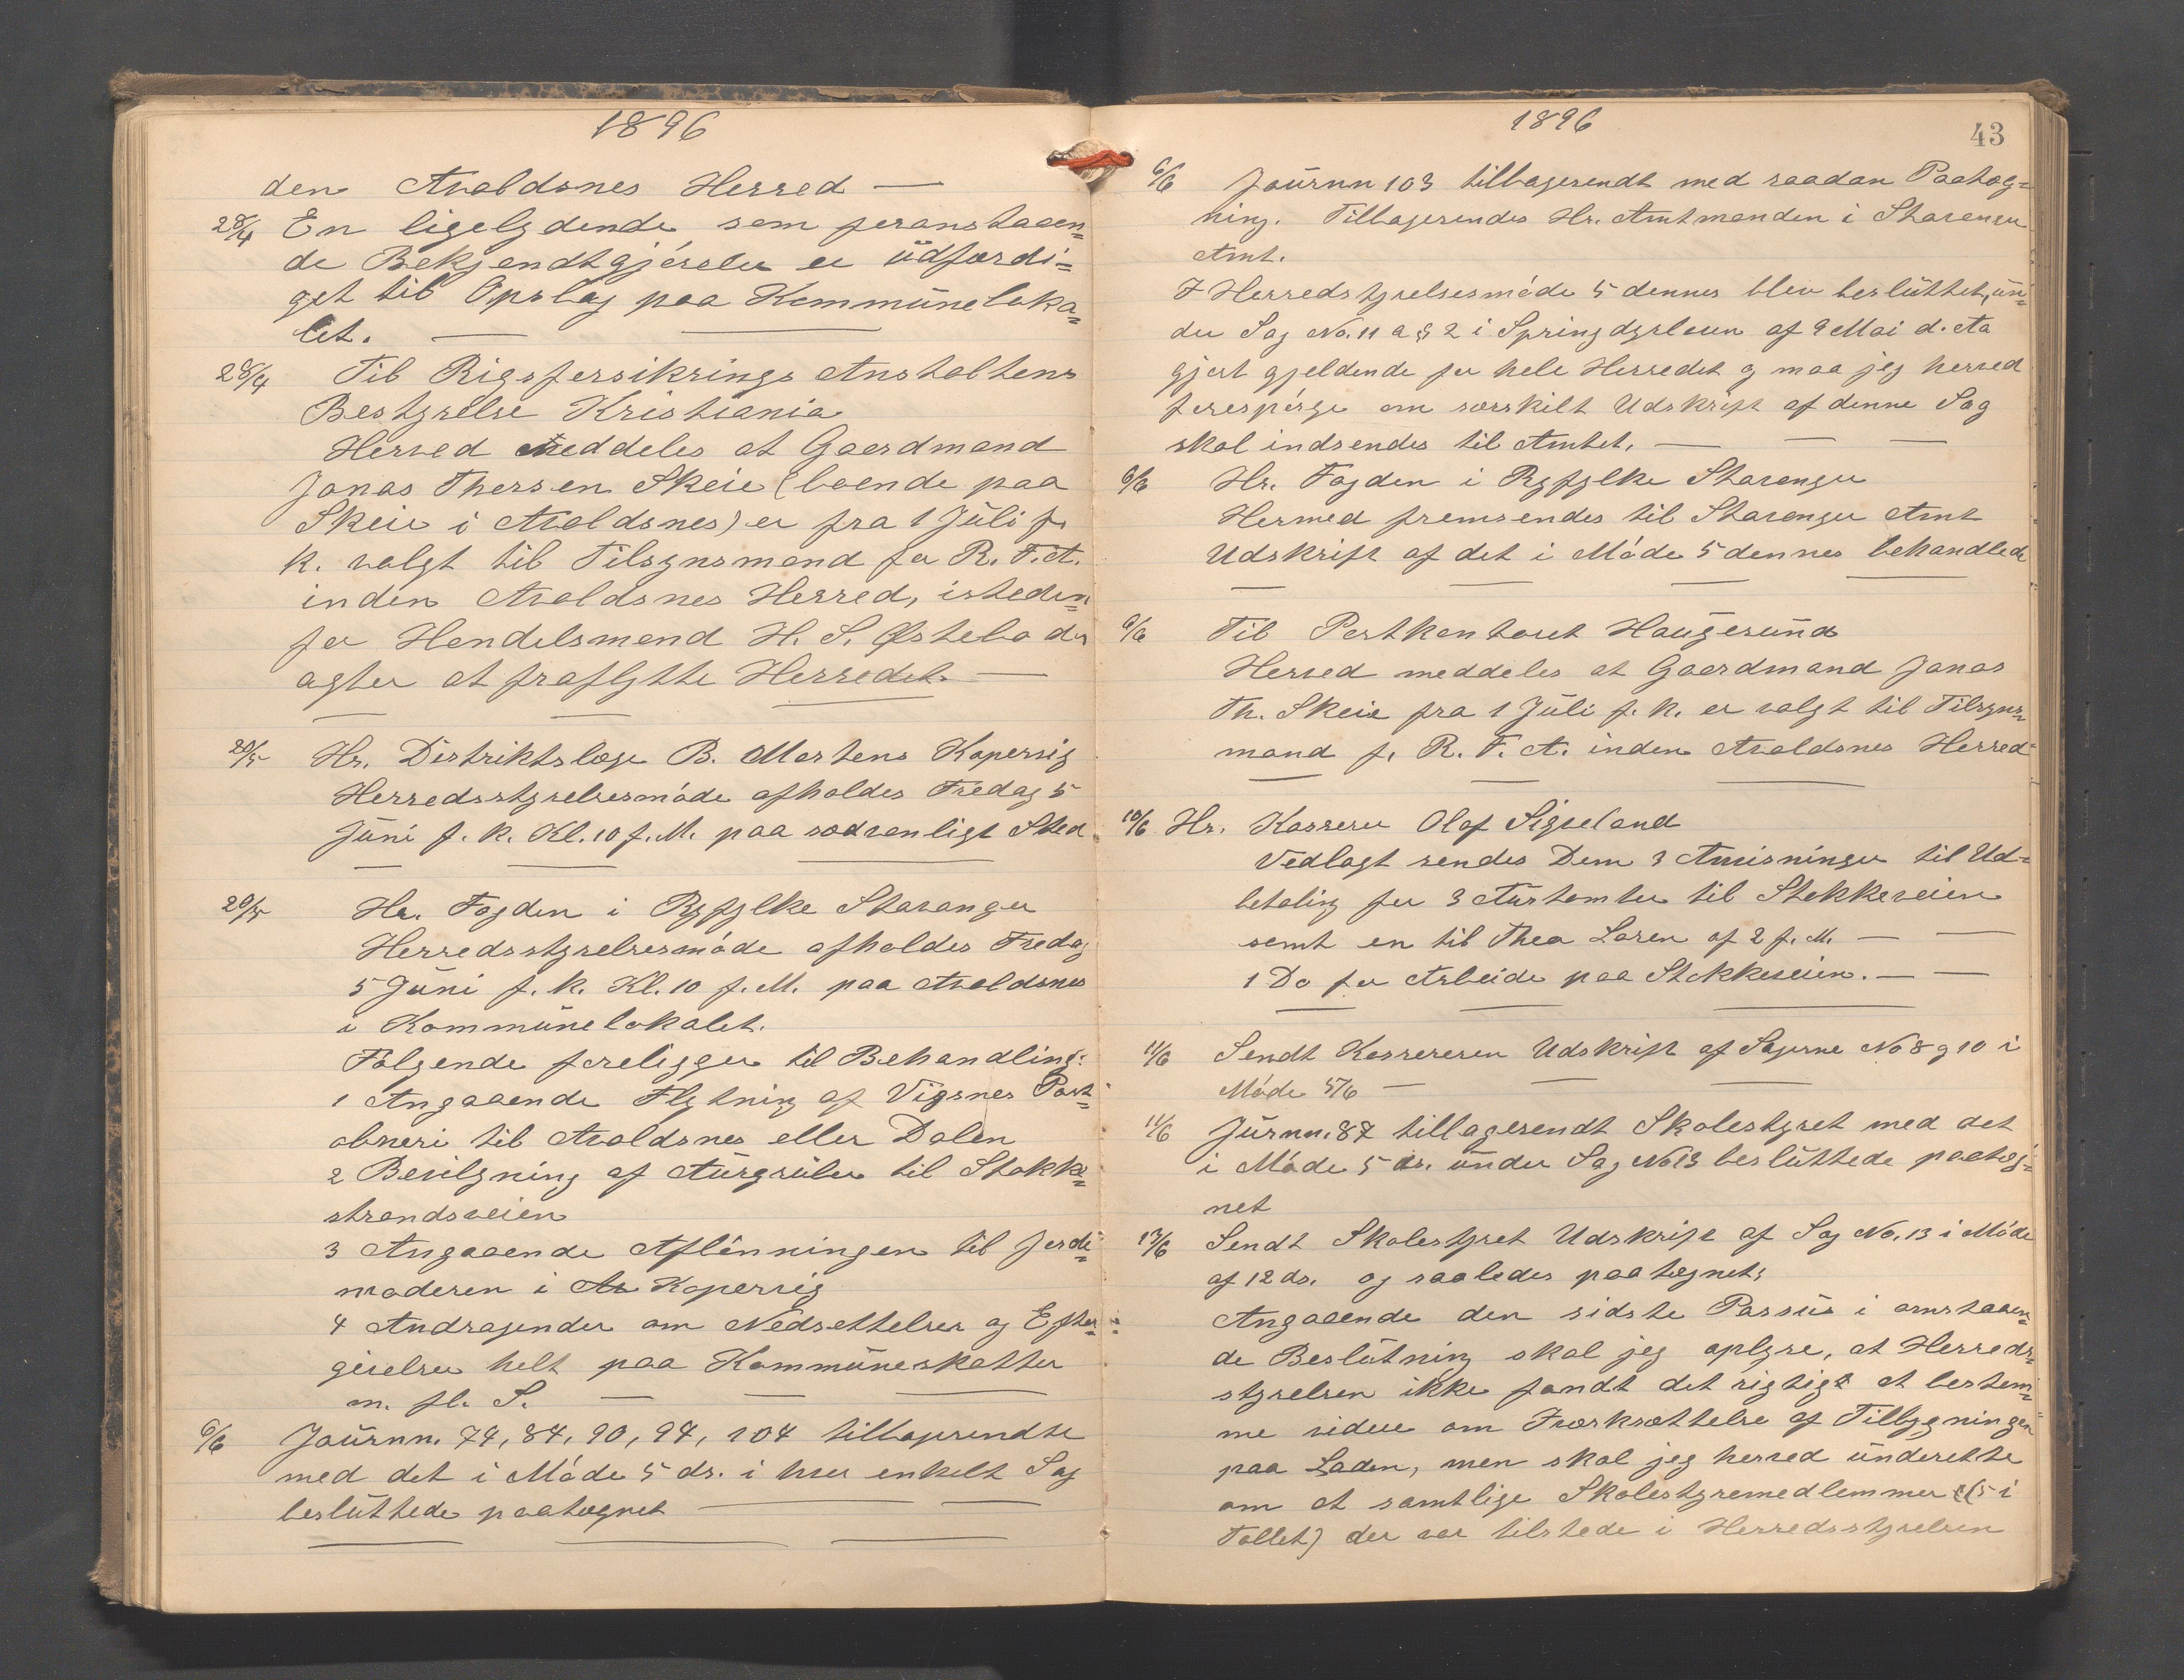 1896
den Avaldsnes Herred —
28/4 En ligelydende som foranstaaen=
de Bekjendtgjórelse er udfærdi=
get til Opslag paa Kommuneloka=
let. —
28/4 Til Rigsforsikrings Anstaltens
Bestyrelse Kristiania
Herved meddeles at Gaardmand
Jonas Thorsen Skeie (boende paa
Skeie i Avaldsnes) er fra 1 Juli f.
k. valgt til Tilsynsmand for R. F. A.
inden Avaldsnes Herred, isteden=
for Handelsmand H. S. Østebø der
agter at fraflytte Herredet. —
20/5 Hr. Distriktslæge B. Martens Kopervig
Herredsstyrelsesmóde afholdes Fredag 5
Juni f. k. Kl. 10 f. M. paa sædvanligt Sted
20/5 Hr. Fogden i Ryfylke Stavanger
Herredsstyrelsesmóde afholdes Fredag
5 Juni f. k. Kl. 10 f. M. paa Avaldsnes
i Kommunelokalet.
Fólgende foreligger til Behandling:
1 Angaaende Flytning af Vigsnes Post=
obneri til Avaldsnes eller Dalen
2 Bevilgning af Aurgruber til Stokke=
strandsveien
3 Angaaende Aflónningen til Jorde=
moderen i Kopervig
4 Andragender om Nedsettelser og Efter=
givelser helt paa Kommuneskatter
m. fl. S. —
6/6 Journn. 74, 84, 90, 94, 104 tilbagesendte
med det i Móde 5 ds. i hver enkelt Sag
besluttede paategnet —
1896
43
6/6 Journn 103 tilbagesendt med saadan Paateg=
ning. Tilbagesendes Hr. Amtmanden i Stavanger
Amt.
I Herredstyrelsesmóde 5 dennes blev besluttet, un=
der Sag No. 11 a § 2 i Springdyrloven af 9 Mai d. Aa
gjort gjeldende for hele Herredet og maa jeg herved
forespórge om særskilt Udskrift af denne Sag
skal indsendes til Amtet. —
6/6 Hr. Fogden i Ryfylke Stavanger
Hermed fremsendes til Stavanger Amt
Udskrift af det i Móde 5 dennes behandlede
6/6 Til Postkontoret Haugesund
Herved meddeles at Gaardmand Jonas
Th. Skeie fra 1 Juli f. k. er valgt til Tilsyns=
mand f. R. F. A. inden Avaldsnes Herred
10/6 Hr. Kasserer Olaf Sigveland
Vedlagt sendes Dem 3 Anvisninger til Ud=
betaling for 3 Aurtomter til Stokkeveien
samt en til Thea Laren af 2 f. M. —
1 Do for Arbeide paa Stokkeveien. —
11/6 Sendt Kassereren Udskrift af Sagerne No 8 og 10 i
Móde 5/6 —
11/6 Jurnn. 87 tilbagesendt Skolestyret med det
i Móde 5 ds. under Sag No 13 besluttede paateg=
net
13/6 Sendt Skolestyret Udskrift af Sag No. 13 i Móde
af 12 ds. og saaledes paategnet;
Angaaende den sidste Passus i omstaaen=
de Beslutning skal jeg oplyse, at Herreds=
styrelsen ikke fandt det rigtigt at bestem=
me videre om Iværksættelse af Tilbygningen
paa Laden, men skal jeg herved underette
om at samtlige Skolestyremedlemmer (5 i
Tallet) der var tilstede i Herredsstyrelsen